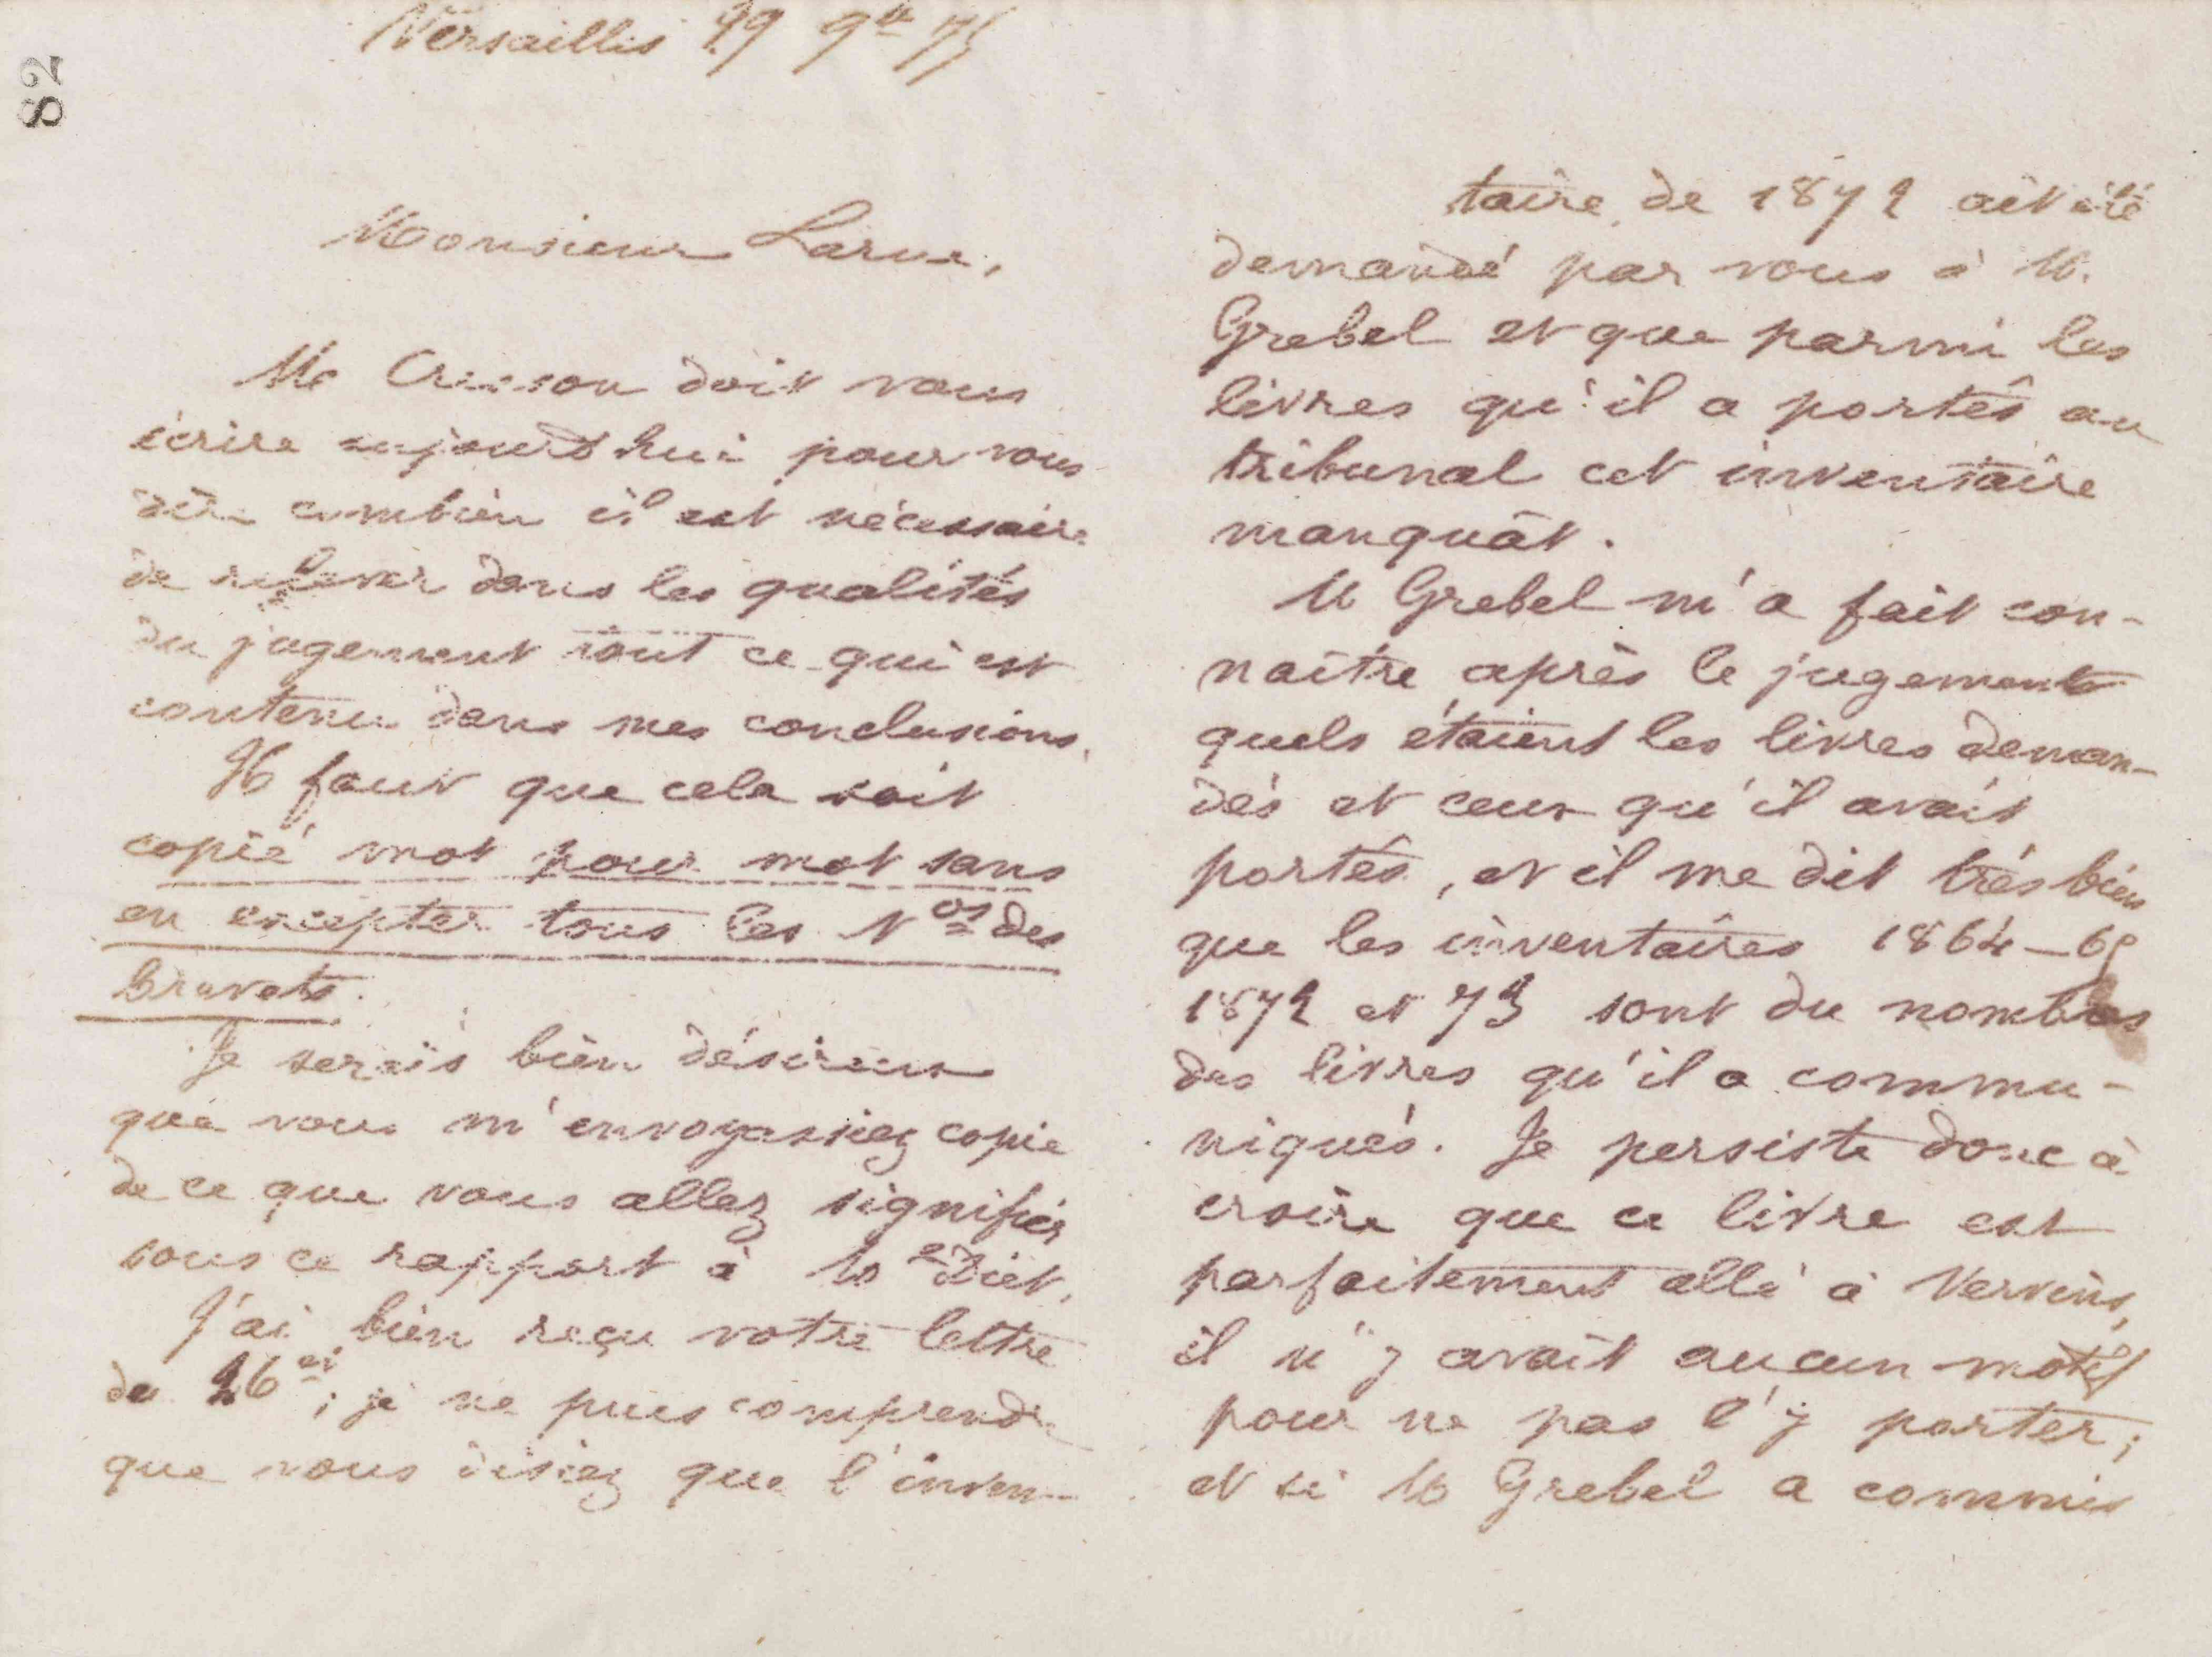 82
Versailles 29 9bre 75
Monsieur Larue,
Me Cresson doit vous
écrire aujourd'hui pour vous
dire combien il est nécessaire
de relever dans les qualités
du jugement tout ce qui est
contenu dans mes conclusions.
Il faut que cela soit
copié mot pour mot sans
en excepter tous les Nos des
brevets.
Je serais bien désireux
que vous m'envoyassiez copie
de ce que vous allez signifier
sous ce rapport à Me Diet.
J'ai bien reçu votre lettre
du 26 ct; je ne puis comprendre
que vous disiez que l'inven-
taire de 1872 ait été
demandé par vous à M.
Grebel et que parmi les
livres qu'il a portés au
tribunal cet inventaire
manquât.
M Grebel m'a fait con-
naître après le jugement
quels étaient les livres deman-
dés et ceux qu'il avait
portés, et il me dit très bien
que les inventaires 1864-65
1872 et 73 sont du nombre
des livres qu'il a commu-
niqués. Je persiste donc à
croire que ce livre est
parfaitement allé à Vervins,
il n'y avait aucun motif
pour ne pas l'y porter;
et si M Grebel a commis